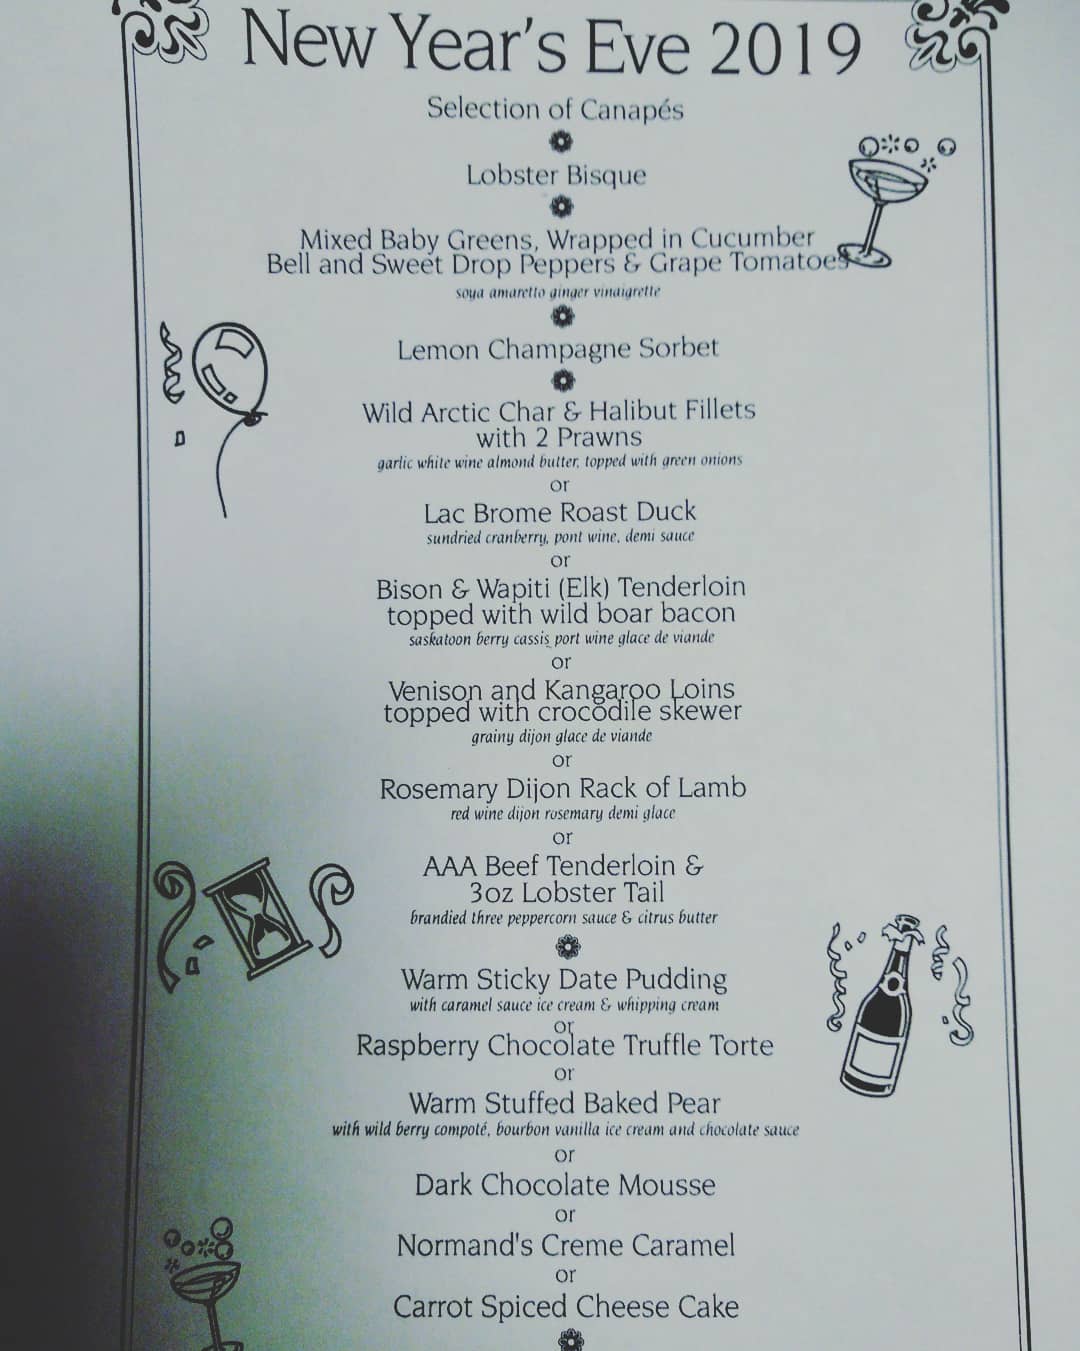 New Year's Eve 2019
Selection of Canapés
Lobster Bisque
Mixed Baby Greens, Wrapped in Cucumber
Bell and Sweet Drop Peppers & Grape Tomatoes
soya amaretto ginger vinaigrette
Lemon Champagne Sorbet
Wild Arctic Char & Halibut Fillets
with 2 Prawns
garlic white wine almond butter, topped with green onions
or
Lac Brome Roast Duck
sundried cranberry, pont wine, demi sauce
or
Bison & Wapiti (Elk) Tenderloin
topped with wild boar bacon
saskatoon berry cassis port wine glace de viande
or
Venison and Kangaroo Loins
topped with crocodile skewer
grainy dijon glace de viande
or
Rosemary Dijon Rack of Lamb
red wine dijon rosemary demi glace
or
AAA Beef Tenderloin &
3oz Lobster Tail
brandied three peppercorn sauce & citrus butter
Warm Sticky Date Pudding
with caramel sauce ice cream & whipping cream
or
Raspberry Chocolate Truffle Torte
or
Warm Stuffed Baked Pear
with wild berry compoté, bourbon vanilla ice cream and chocolate sauce
or
Dark Chocolate Mousse
or
Normand's Creme Caramel
or
Carrot Spiced Cheese Cake